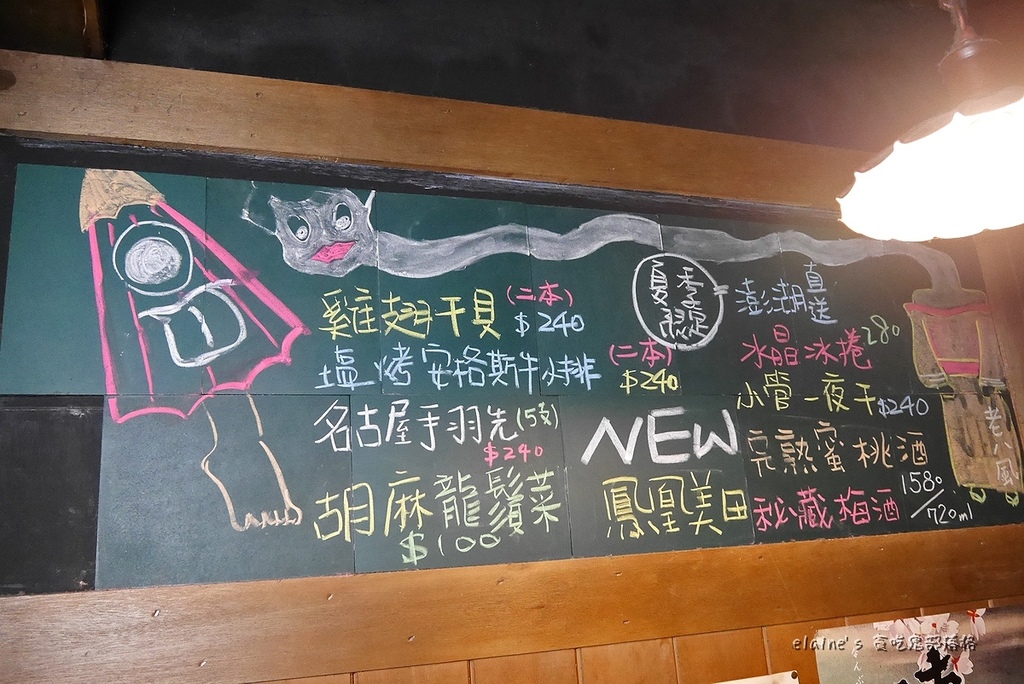 雞翅干貝(二本)
$240
塩烤安格斯牛小排(二本)
$240
名古屋手羽先(5支)
$240
胡麻龍鬚菜
$100
夏季限定
澎湖直送
水晶冰捲280
小管一夜干$240
NEW
鳳凰美田
完熟蜜桃酒
秘藏梅酒
1580/720ml
老小風
elaine's 貪吃鬼部落格